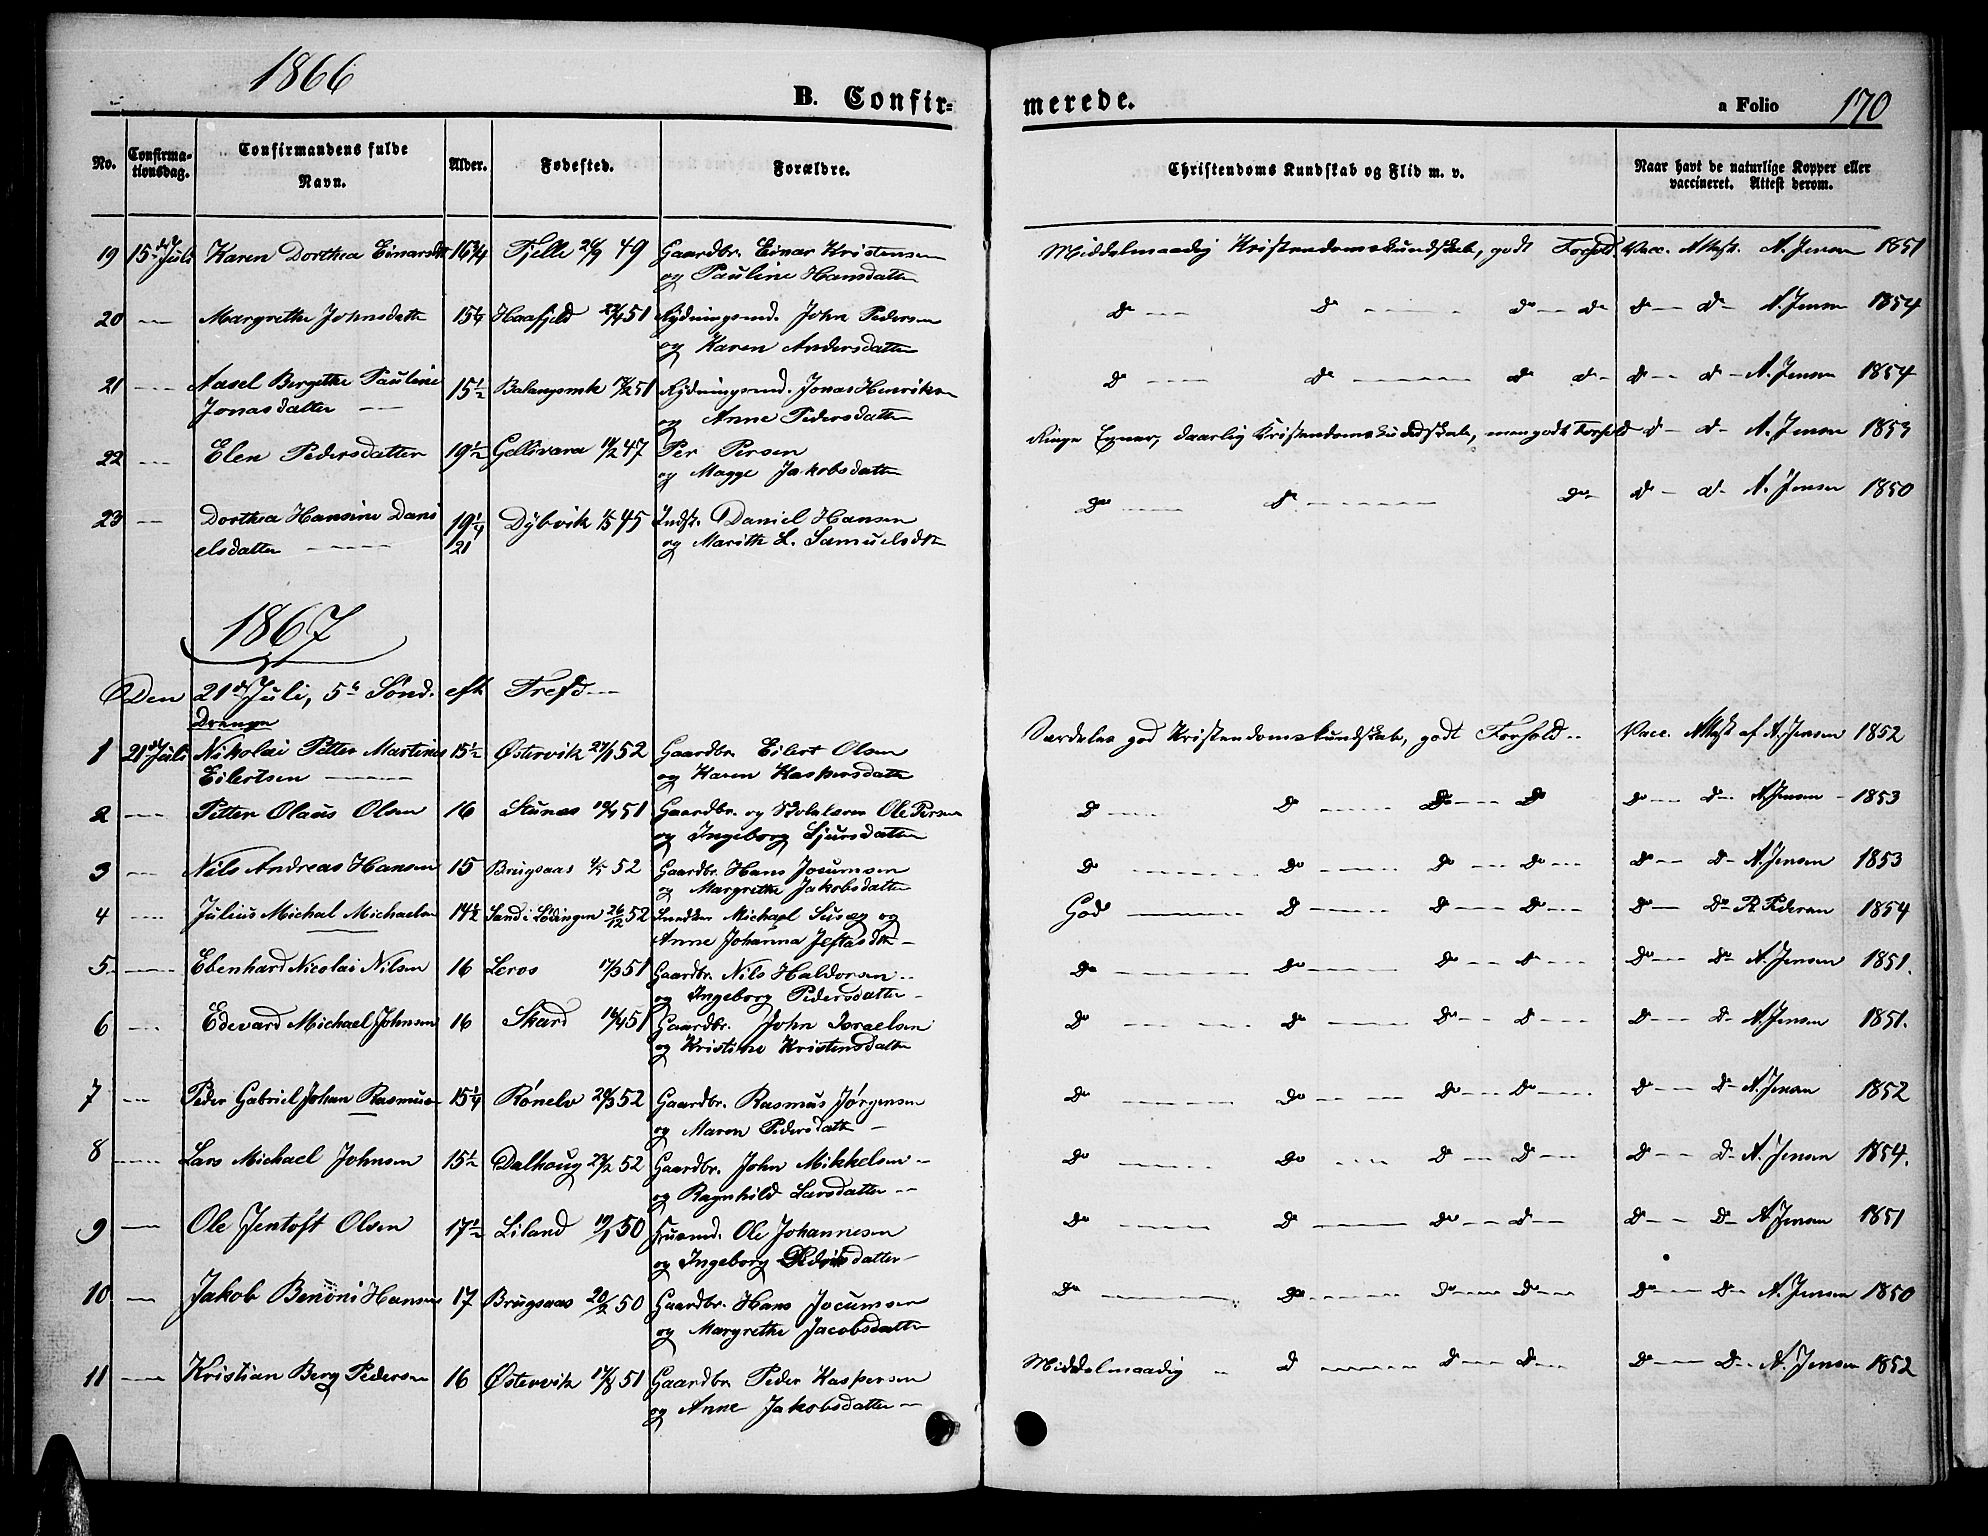 1866
B. Confirmerede.
a Folio 170
No. Confirmationsdag. Confirmandens fulde Navn. Alder. Fødested. Forældre. Christendoms Kundskab og Flid m. v. Naar havt de naturlige Kopper eller vaccineret. Attest derom.
19 15de Juli Karen Dorthea Einarsdtr 16 3/4 Fjelle 49 Gaardbr. Einar Kristensen Middelmaadig Kristendomskundskab, godt Forhold. Vacc. Attest. A. Jensen 1851
og Pauline Hansdatter
20 — Margrethe Johnsdatter 15 1/4 Haafjeld 51 Rydningsmd. John Pedersen do — do — do — do do — do — A. Jensen 1854
og Karen Andersdatter
21 — Aasel Bergithe Pauline 15 1/2 Balangsmk 51 Rydningsmd. Jonas Henriksen do — do — do do — do — do — A. Jensen 1854
Jonasdatter — og Anne Pedersdatter
22 — Elen Pedersdatter 19 1/2 Gellivara 47 Per Persen Ringe Evner, daarlig Kristendomskundskab, men godt Forhold do — do — A. Jensen 1853
og Magge Jakobsdatter
23 — Dorthea Hansine Dani 19 1/4 Dybvik 45 Indst. Daniel Hansen do — do — do — do — do — A. Jensen 1850
elsdatter — 21 og Marith L. Samuelsdtr
1867
Den 21de Juli, 5te Sønd. efter Trefd —
Drenge
1 21de Juli Nikolai Petter Martines 15 1/2 Østervik 52 Gaardbr. Eilert Olsen Særdeles god Kristendomskundskab, godt Forhold.. Vacc. Attest af A. Jensen 1852
Eilertsen — og Karen Kaspersdatter
2 — Petter Olaus Olsen 16 Stunes 51 Gaardbr. og Skolelærer Ole Persen do — do — do — do do — do — A. Jensen — 1853
og Ingeborg Sjursdatter
3 — Nils Andreas Hansen 15 Brugsaas 4/5 52 Gaardbr. Hans Jocumsen do — do — do — do — do — do — A. Jensen 1853
og Margrethe Jakobsdatter
4 — Julius Michal Michaelsen 14 1/2 Sand i Lødingen 26/12 52 Michael Susæg og God — do — do — do — do — do P. Pedersen 1854
Anne Johanna Jeftasdtr —
5 — Ebenhard Nicolai Nilsen 16 Leros 17/3 51 Gaardbr. Nils Haldorsen.. do — do — do — do — do — do A. Jensen 1851.
og Ingeborg Pedersdatter —
6 — Edevard Michael Johnsen 16 Skard 51 Gaardbr. John Israelsen do — do — do — do — do — do — A. Jensen 1851.
og Kristine Kristensdatter
7 — Peder Gabriel Johan Rasmusen 15 1/4 Rónelv 52 Gaardbr. Rasmus Jørgensen do — do — do — do — do — do — A. Jensen 1852
og Maren Pedersdatter —
8 — Lars Michael Johnsen 15 1/2 Dalhoug 52 Gaardbr. John Mikkelsen — do — do — do — do — do — do — A. Jensen 1854.
og Ragnhild Larsdatter —
9 — Ole Jentoft Olsen 17 1/2 Liland 50 Huusmd. Ole Johannesen do — do — do — do — do — do — A. Jensen 1851
og Ingeborg Pedersdatter —
10 — Jakob Benoni Hansen 17 Brugsaas 20/2 50 Gaardbr. Hans Jocumsen do — do — do — do — do — do — A. Jensen 1850
og Margrethe Jacobsdatter
11 — Kristian Berg Pedersen 16 Østervik 17/8 51 Gaardbr Peder Kaspersen Middelmaadig — do — do — do — do — do — A. Jensen 1852
og Anne Jakobsdatter —